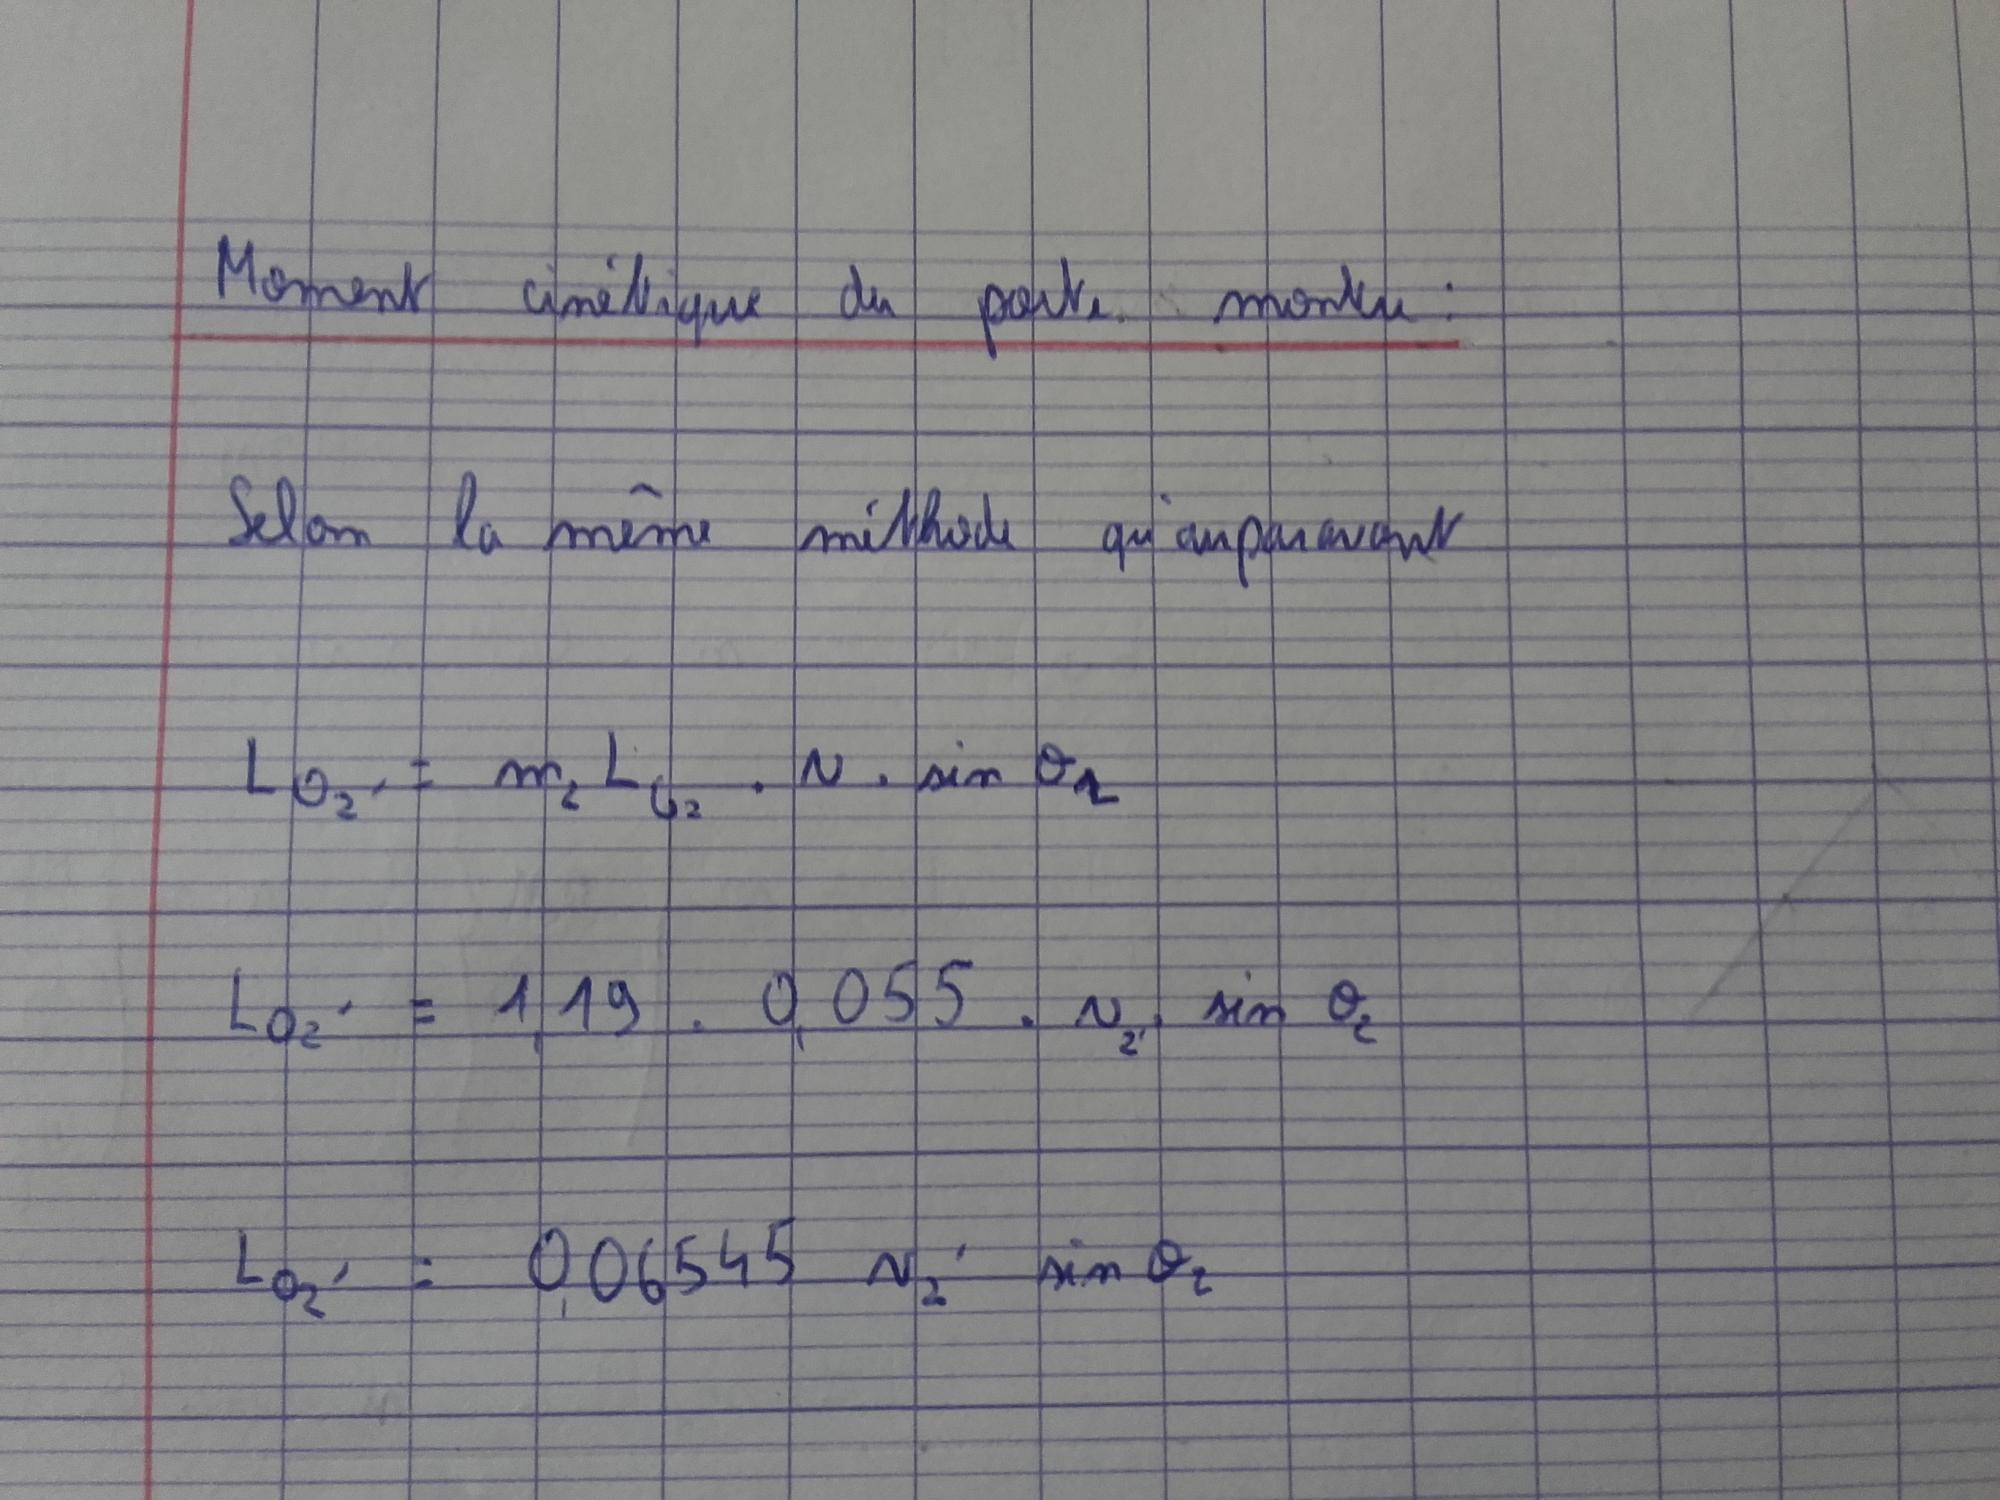 Moment cinétique du porte montre :
Selon la même méthode qu'auparavant
L_{O_2'} = m_2 L_{G_2} . v . sin θ_2
L_{O_2'} = 1,19 . 0,055 . v_{2'} sin θ_2
L_{O_2'} = 0,06545 v_2' sin θ_2